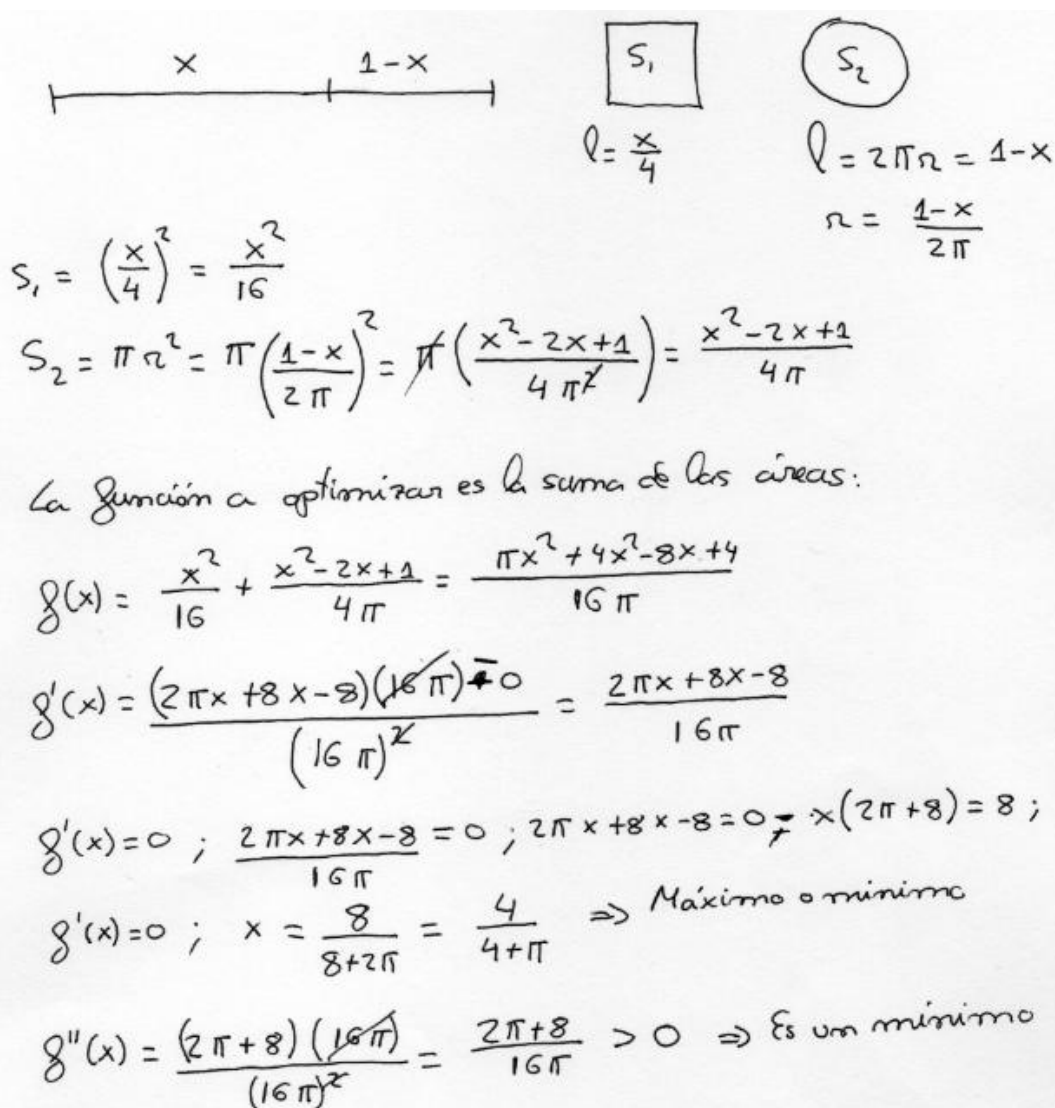 x 1-x S₁ S₂
l = x/4 l = 2πr = 1-x
r = (1-x)/(2π)
S₁ = (x/4)² = x²/16
S₂ = πr² = π((1-x)/(2π))² = π((x²-2x+1)/(4π²)) = (x²-2x+1)/(4π)
La función a optimizar es la suma de las áreas:
f(x) = x²/16 + (x²-2x+1)/(4π) = (πx²+4x²-8x+4)/(16π)
f'(x) = ((2πx+8x-8)(16π)-0)/(16π)² = (2πx+8x-8)/(16π)
f'(x)=0 ; (2πx+8x-8)/(16π) = 0 ; 2πx+8x-8=0 ; x(2π+8) = 8 ;
f'(x)=0 ; x = 8/(8+2π) = 4/(4+π) ⇒ Máximo o mínimo
f''(x) = ((2π+8)(16π))/(16π)² = (2π+8)/(16π) > 0 ⇒ Es un mínimo